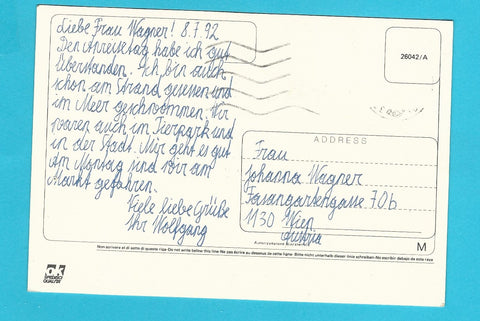 Liebe Frau Wagner! 8.7.92
Den Anreisetag habe ich gut
überstanden. Ich bin auch
schon am Strand gewesen und
im Meer geschwommen. Wir
waren auch im Tierpark und
in der Stadt. Mir geht es gut
Am Montag sind wir am
Markt gefahren.
Viele liebe Grüße
Ihr Wolfgang
26042/A
ADDRESS
Frau
Johanna Wagner
Fasangartengasse 70b
1130 Wien
Austria
M
Non scrivere al di sotto di questa riga-Do not write below this line-Ne pas écrire au dessous de cette ligne-Bitte nicht unterhalb dieser linie schreiben-No escribir debajo de esta raya
ok